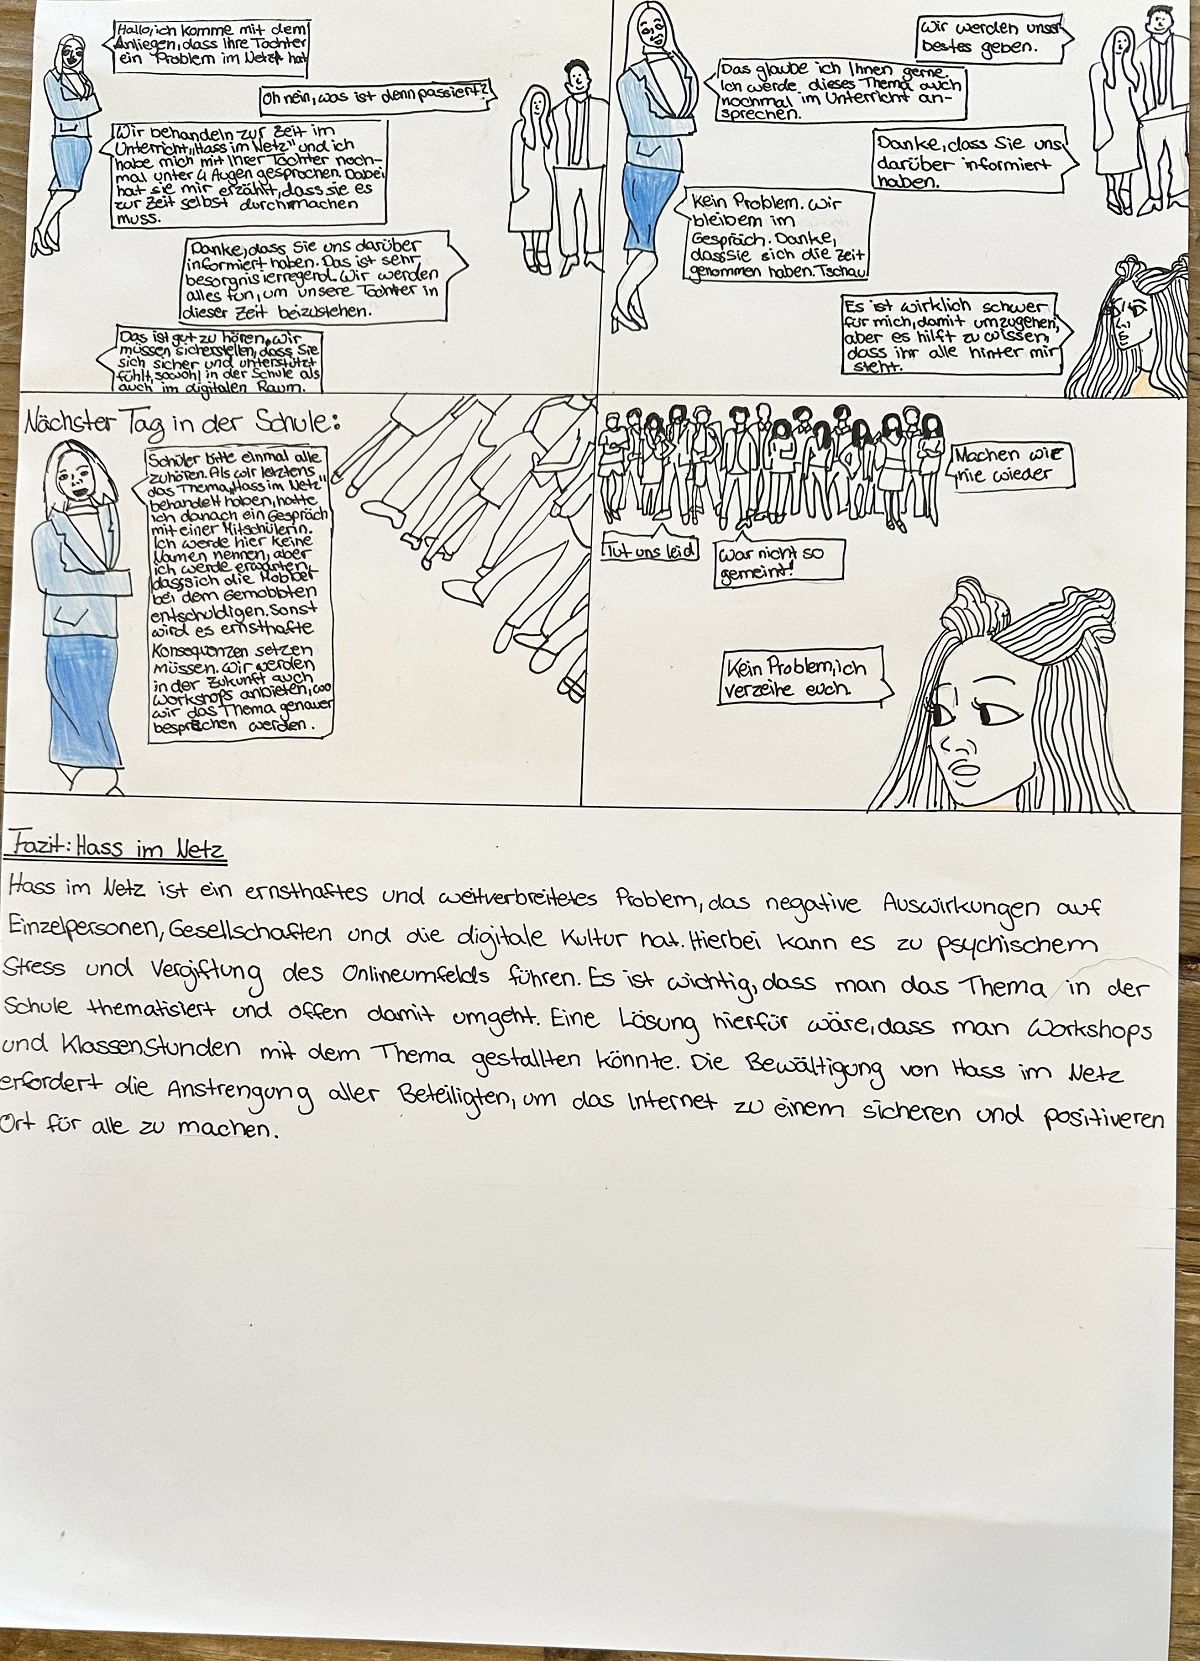 Hallo, ich komme mit dem
Anliegen, dass Ihre Tochter
ein Problem im Netz hat
Oh nein, was ist denn passiert?
Wir behandeln zur Zeit im
Unterricht „Hass im Netz" und ich
habe mich mit Ihrer Tochter noch-
mal unter 4 Augen gesprochen. Dabei
hat sie mir erzählt, dass sie es
zur Zeit selbst durchmachen
muss.
Danke, dass Sie uns darüber
informiert haben. Das ist sehr
besorgniserregend. Wir werden
alles tun, um unsere Tochter in
dieser Zeit beizustehen.
Das ist gut zu hören, wir
müssen sicherstellen, dass Sie
sich sicher und unterstützt
fühlt, sowohl in der Schule als
auch im digitalen Raum.
Wir werden unser
bestes geben.
Das glaube ich Ihnen gerne.
Ich werde dieses Thema auch
nochmal im Unterricht an-
sprechen.
Danke, dass Sie uns
darüber informiert
haben.
Kein Problem. Wir
bleiben im
Gespräch. Danke,
dass sie sich die Zeit
genommen haben. Tschau
Es ist wirklich schwer
für mich, damit umzugehen,
aber es hilft zu wissen,
dass ihr alle hinter mir
steht.
Nächster Tag in der Schule:
Schüler bitte einmal alle
zuhören. Als wir letztens
das Thema „Hass im Netz"
behandelt haben, hatte
ich danach ein Gespräch
mit einer Mitschülerin.
Ich werde hier keine
Namen nennen, aber
ich werde erwarten,
dass sich die Mobber
bei dem Gemobbten
entschuldigen. Sonst
wird es ernsthafte
Konsequenzen setzen
müssen. Wir werden
in der Zukunft auch
Workshops anbieten, wo
wir das Thema genauer
besprechen werden.
Machen wir
nie wieder
Tut uns leid
War nicht so
gemeint!
Kein Problem, ich
verzeihe euch.
Fazit: Hass im Netz
Hass im Netz ist ein ernsthaftes und weitverbreitetes Problem, das negative Auswirkungen auf
Einzelpersonen, Gesellschaften und die digitale Kultur hat. Hierbei kann es zu psychischem
Stress und Vergiftung des Onlineumfelds führen. Es ist wichtig, dass man das Thema in der
Schule thematisiert und offen damit umgeht. Eine Lösung hierfür wäre, dass man Workshops
und Klassenstunden mit dem Thema gestallten könnte. Die Bewältigung von Hass im Netz
erfordert die Anstrengung aller Beteiligten, um das Internet zu einem sicheren und positiveren
Ort für alle zu machen.